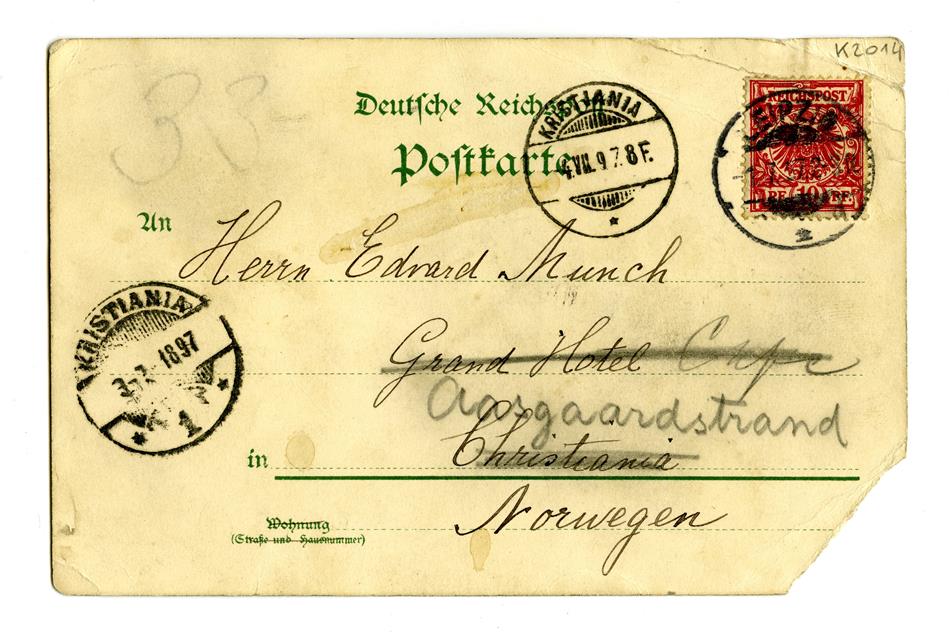 K2014
33-
Deutsche Reichspost
Postkarte
KRISTIANIA
4.VII.97.8F.
REICHSPOST
LEIPZIG
PF. 10 PF.
2
An
Herrn Edvard Munch
KRISTIANIA
1897
1
Grand Hotel
Aasgaardstrand
in Christiania
Norwegen
Wohnung
(Straße und Hausnummer)